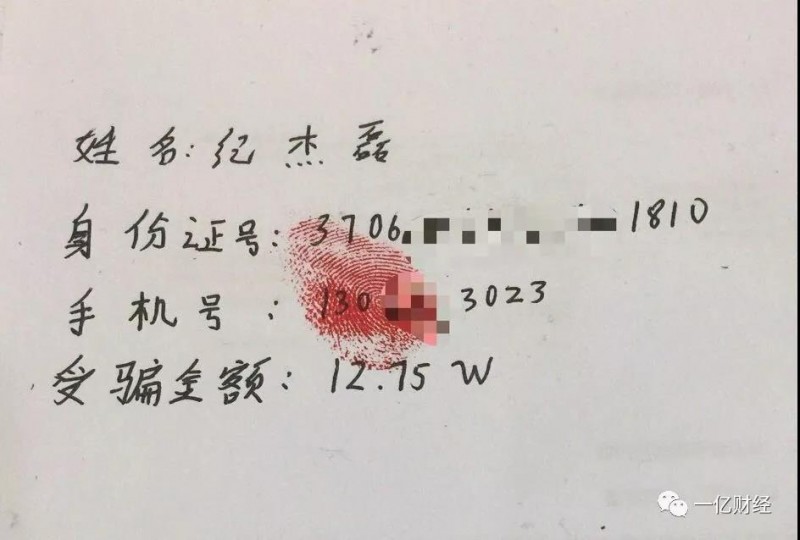 姓名:纪杰磊
身份证号:3706 1810
手机号:130 3023
受骗金额:12.75W
一亿财经